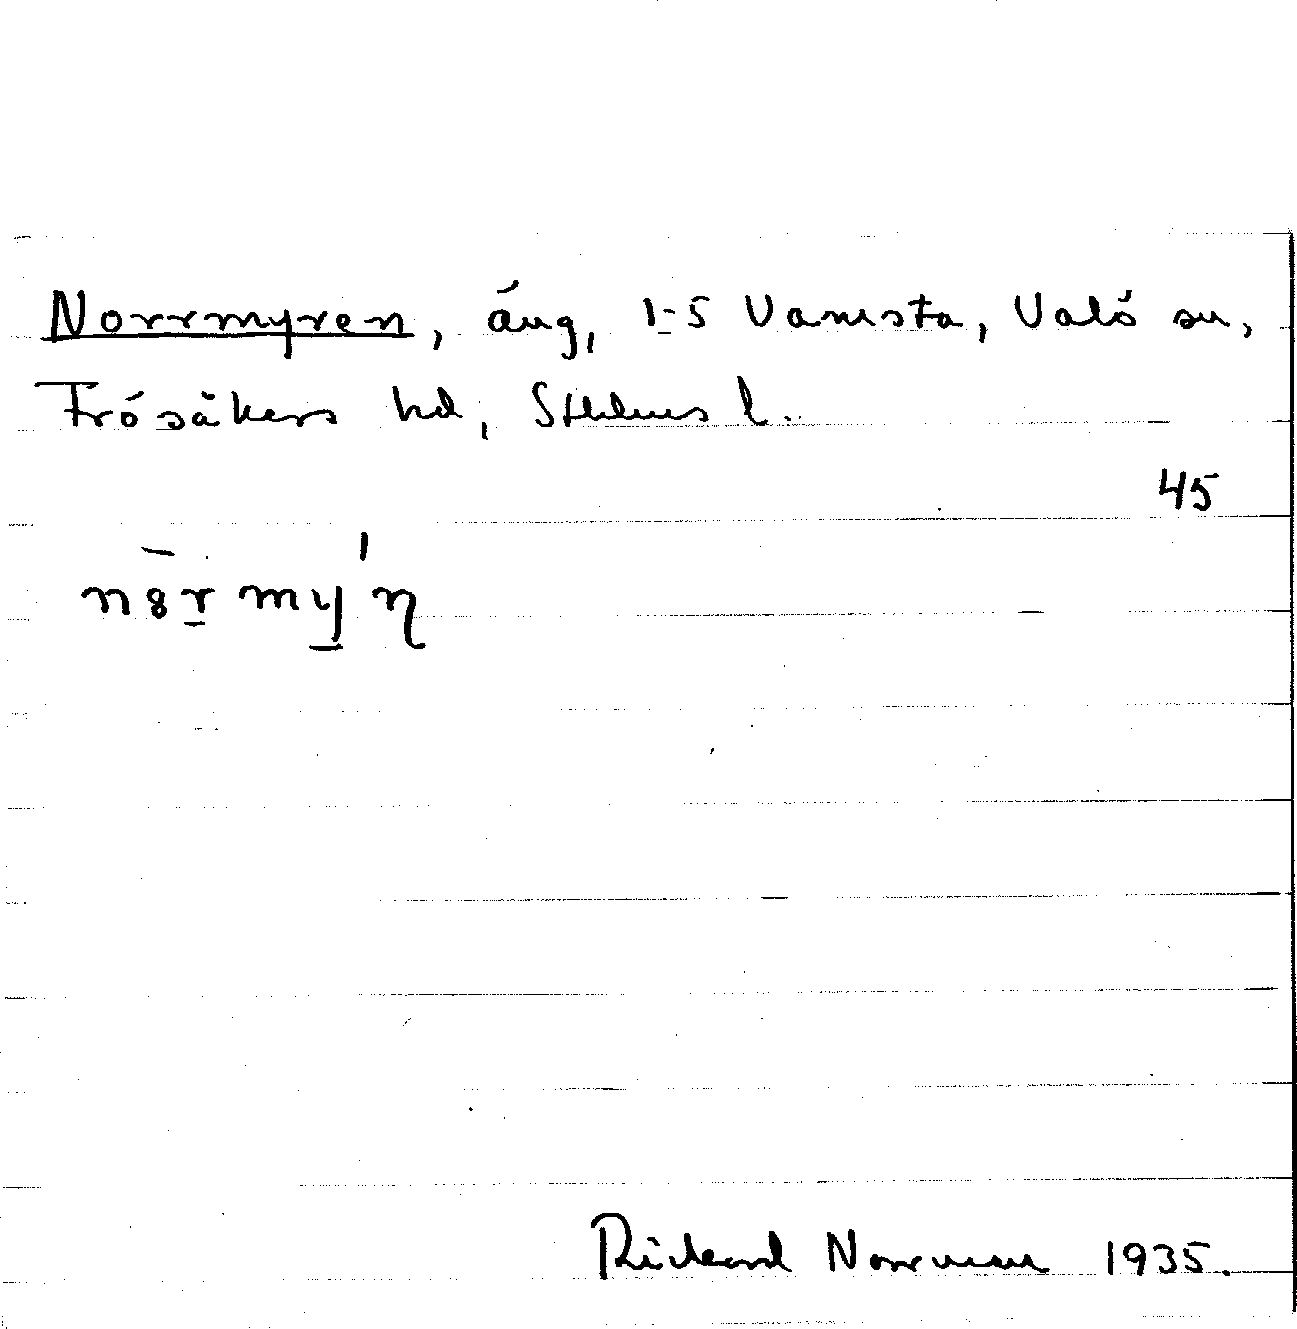 Norrmyren, äng, 1-5 Vamsta, Valö sn,
Frösåkers hd, Sthlms l.
45
n8r my'n
Rickard Norrman 1935.